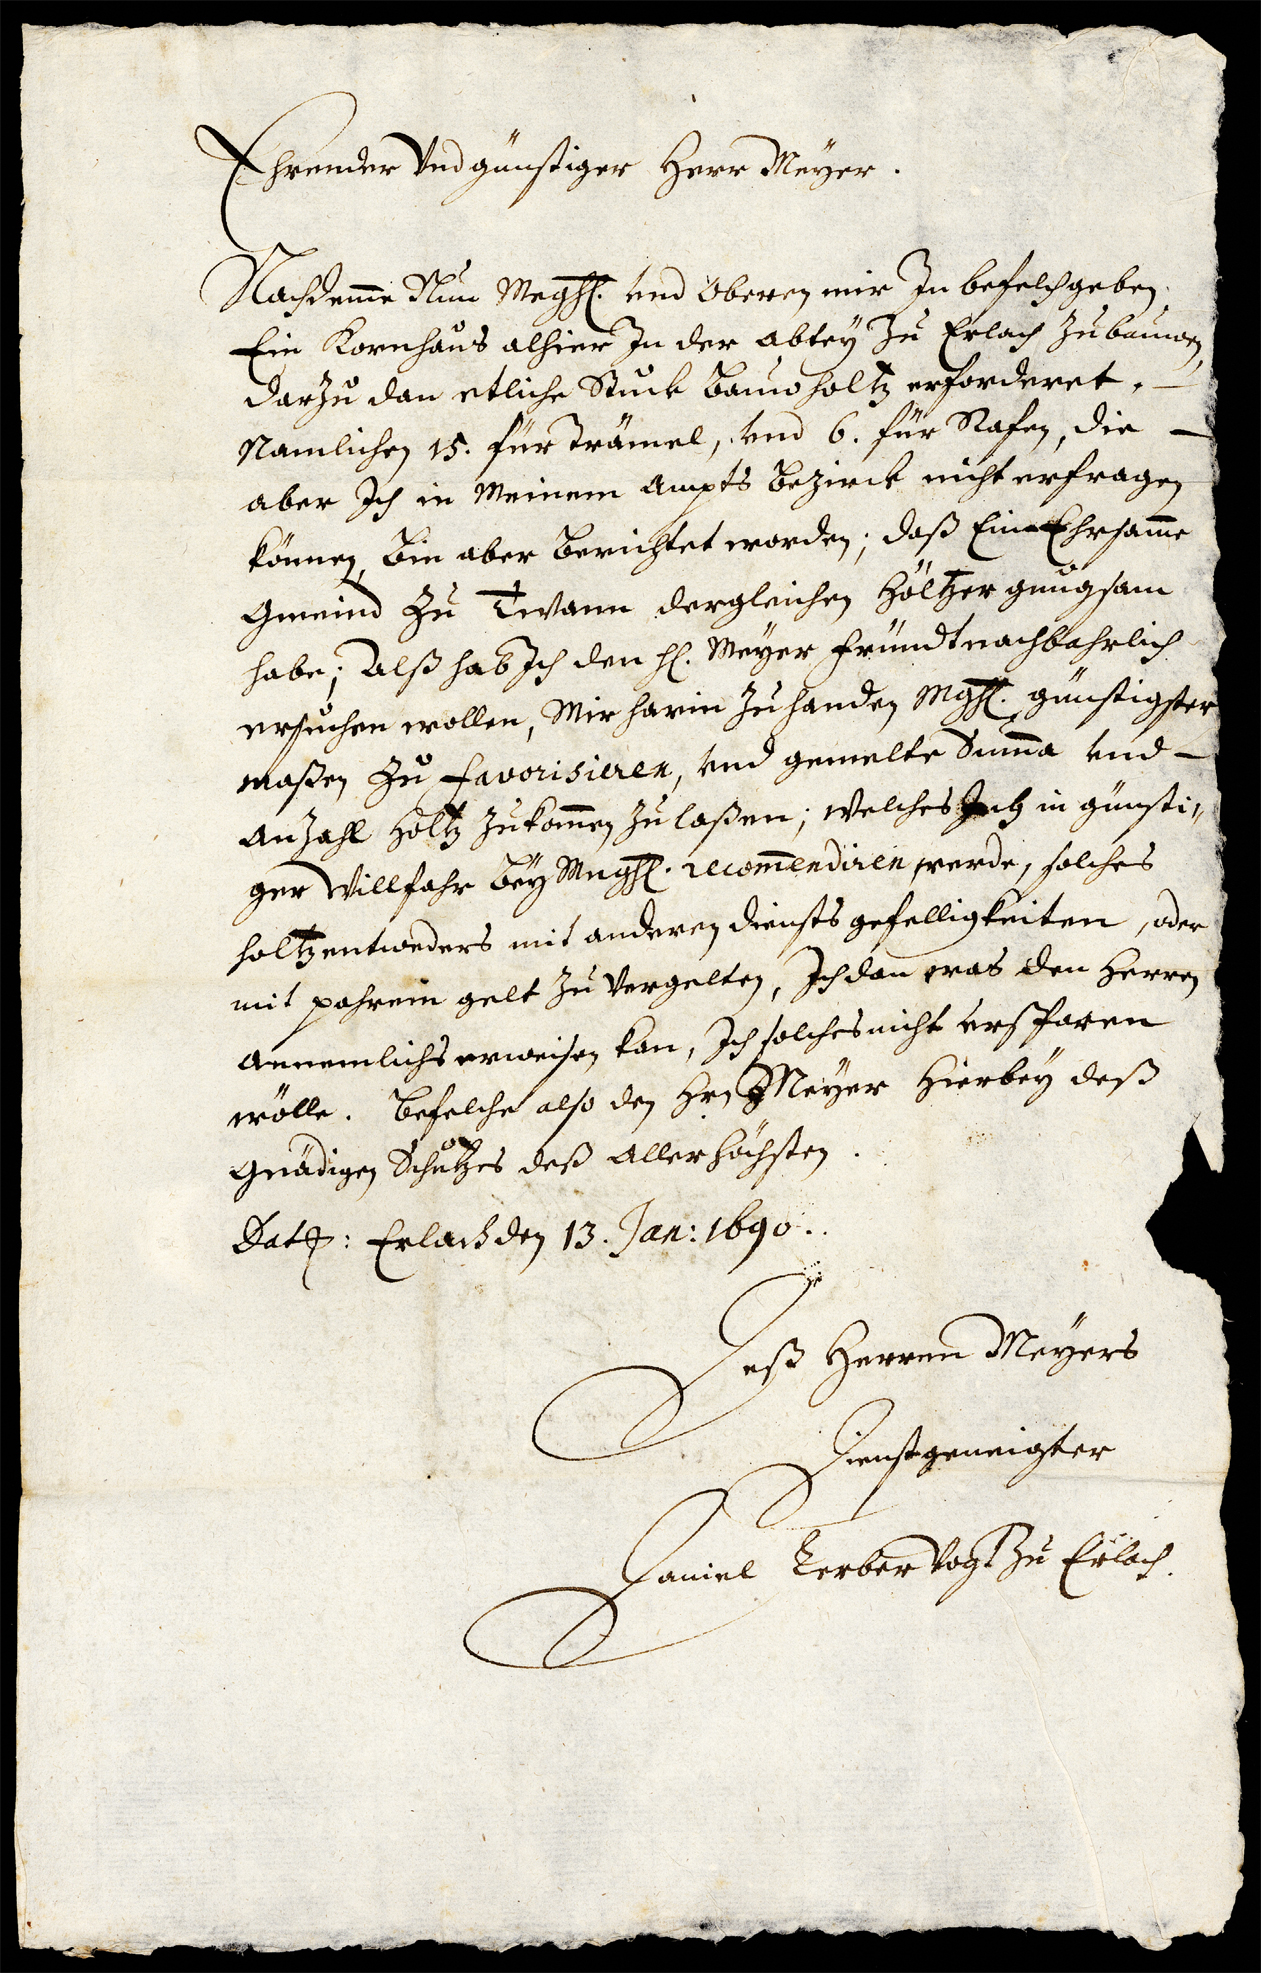 Ehrender Vnd günstiger Herr Meÿer.
Nachdemme Nun Meghh. vnd Oberen mir In befelch geben,
Ein Kornhaus alhier In der abteÿ Zu Erlach Zubauwen,
darzu dan etliche Stuck Bauwholtz erforderet,
Namlichen 15. für Trämel, vnd 6. für Rafen, die
aber Ich in Meinem Ampts Bezirck nicht erfragen
können, Bin aber Berichtet worden; daß Eine Ehrsamme
Gmeind Zu Twann dergleichen Höltzer gnugsam
habe; Alß hab Ich den H. Meÿer fründtnachbahrlich
ersuchen wollen, Mir harin Zuhanden Mghh. günstigster
maßen Zu favorisieren, vnd gemelte Summa vnd
Anzahl Holtz Zukommen Zulaßen; welches Ich in günsti„
ger Willfahr Beÿ Mnghh. recommendiren werde, solches
holtz entweders mit anderen diensts gefelligkeiten, oder
mit pahrem gelt Zu Vergelten, Ich dan was den Herren
annemlichs erweisen kan, Ich solches nicht ersparen
wölle. Befelche also den Hrn Meÿer Hierbeÿ deß
Gnädigen Schutzes deß Allerhöchsten.
Datum: Erlach den 13. Jan: 1690.
Deß Herren Meÿers
Dienstgeneigter
Daniel Lerber Vogt Zu Erlach.